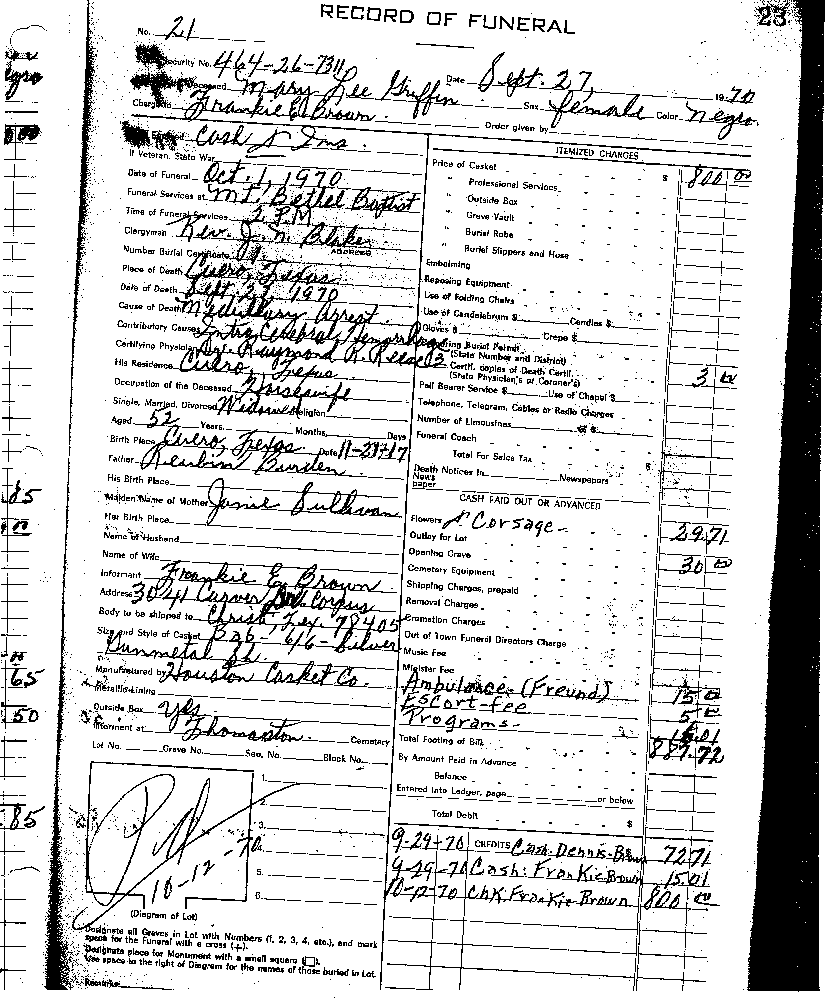 RECORD OF FUNERAL
23
No. 21
Security No. 464-26-7311
Date Sept. 27, 1970
Deceased Mary Lee Griffin Sex female Color Negro.
Charge to Frankie E. Brown. Order given by
Cash & Ins.
If Veteran, State War
Date of Funeral Oct. 1, 1970
Funeral Services at Mt. Bethel Baptist
Time of Funeral Services 2 P.M.
Clergyman Rev. J. N. Blake
ADDRESS
Number Burial Certificate
Place of Death Cuero, Texas
Date of Death Sept. 27, 1970
Cause of Death Medullary Arrest
Contributory Causes Intra Cerebral Hemorrhage
Certifying Physician Dr. Raymond R. Reese
His Residence Cuero, Texas
Occupation of the Deceased Housewife
Single, Married, Divorced Widowed Religion
Aged 52 Years, Months, Days
Birth Place Cuero, Texas Date 11-27-17
Father Reubin Burden.
His Birth Place
Maiden Name of Mother Janie Sullivan
Her Birth Place
Name of Husband
Name of Wife
Informant Frankie E. Brown
Address 3041 Carver Dr. Corpus
Body to be shipped to Christi, Tex. 78405
Size and Style of Casket 6/6 - Silver
Gunmetal
Manufactured by Houston Casket Co.
Metallic Lining
Outside Box yes
Interment at Thomaston. Cemetery
Lot No. Grave No. Sec. No. Block No.
1.
2.
3.
5.
6.
Pd
10-12-70
(Diagram of Lot)
Designate all Graves in Lot with Numbers (1, 2, 3, 4, etc.), and mark
space for the Funeral with a cross (+).
Designate place for Monument with a small square (☐).
Use space to the right of Diagram for the names of those buried in Lot.
Remarks:
ITEMIZED CHARGES
Price of Casket $ 800 00
" Professional Services
" Outside Box
" Grave Vault
" Burial Robe
" Burial Slippers and Hose
Embalming
Reposing Equipment
Use of Folding Chairs
Use of Candelabrum $ Candles $
Gloves $ Crepe $
Burial Permit
(State Number and District)
3 Certif. copies of Death Certif. 3 00
(State Physician's or Coroner's)
Pall Bearer Service $ Use of Chapel $
Telephone, Telegram, Cables or Radio Charges
Number of Limousines @ $
Funeral Coach
Total For Sales Tax $
Death Notices In Newspapers
News
paper
CASH PAID OUT OR ADVANCED
Flowers & Corsage - 29.71
Outlay for Lot
Opening Grave 30 00
Cemetery Equipment
Shipping Charges, prepaid
Removal Charges
Cremation Charges
Out of Town Funeral Directors Charge
Music Fee
Minister Fee
Ambulance (Freund) 15 00
Escort-fee 5 00
Programs-
Total Footing of Bill 887.72
By Amount Paid in Advance
Balance
Entered into Ledger, page or below
Total Debit $
9-29-70 CREDITS Cash-Dennis-Brown 72.71
9-29-70 Cash: Frankie Brown 15.01
10-12-70 Chk. Frankie Brown 800 00
85
65
50
85